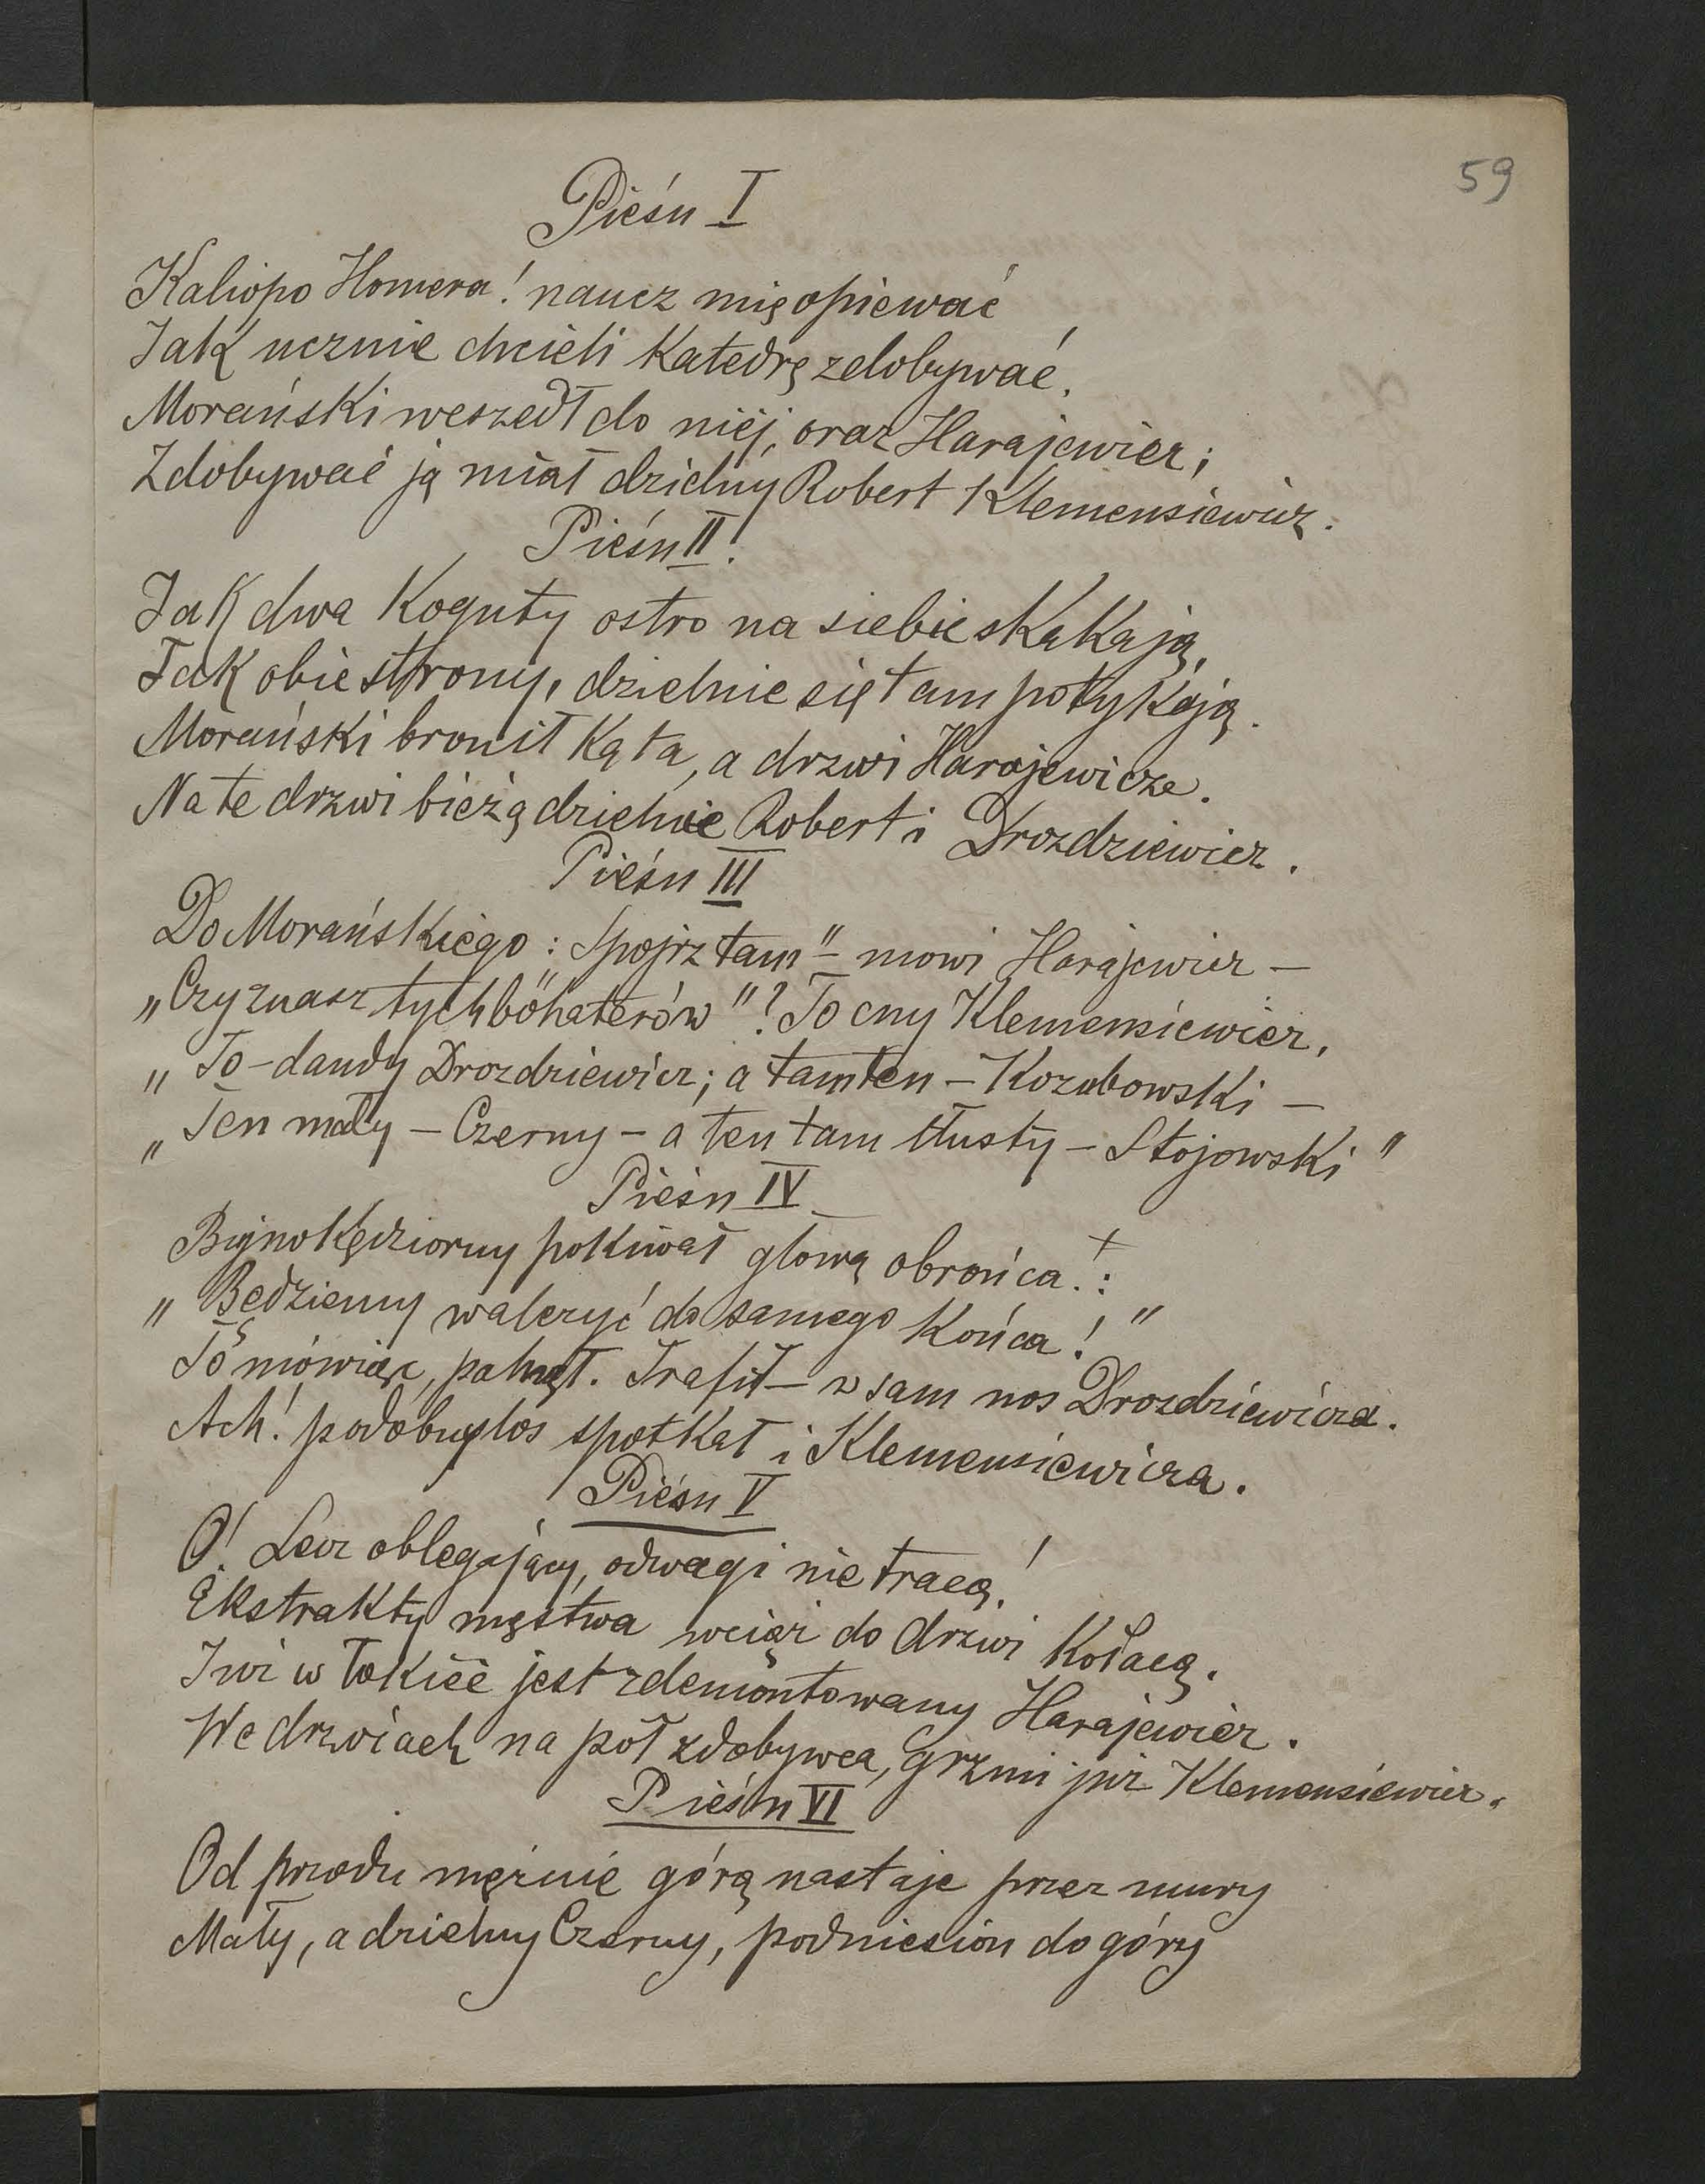 59
Pieśń I
Kaliopo Homera! naucz mię opiewać
Jak ucznie chcieli Katedrę zdobywać.
Morański wszedł do niéj, oraz Harajewicz;
Zdobywać ją miał dzielny Robert Klemensiewicz.
Pieśń II!
Jak dwa Koguty ostro na siebie skakają,
Tak obie strony, dzielnie się tam potykają.
Morański bronił Kąta, a drzwi Harajewicze.
Na te drzwi bieżą dzielnie Robert i Drozdziewicz.
Pieśń III
Do Morańskiego: Spojrz tam" – mowi Harajewicz –
„Czy znasz tych bohaterów"? To cny Klemensiewicz,
„To – dandy Drozdziewicz; a tamten – Kozubowski –
„Ten mały – Czerny – a ten tam tłusty – Stojowski"
Pieśń IV
Bujnokędziorny pokiwał głową obrońca! +:
„Będziemy walczyć do samego Końca!"
To mówiąc, palnął. Trafił – w sam nos Drozdziewicza.
Ach! podobny los spotkał i Klemensiewicza.
Pieśń V
O! Lecz oblegający, odwagi nie tracą!
Ekstrakty męstwa wciąż do drzwi Kołacą.
Już w łokieć jest zdemontowany Harajewicz.
We drzwiach na pół zdobywca, grzmi już Klemensiewicz.
Pieśń VI
Od przodu mężnie górą nastaje przez mury
Mały, a dzielny Czerny, podniesion do góry